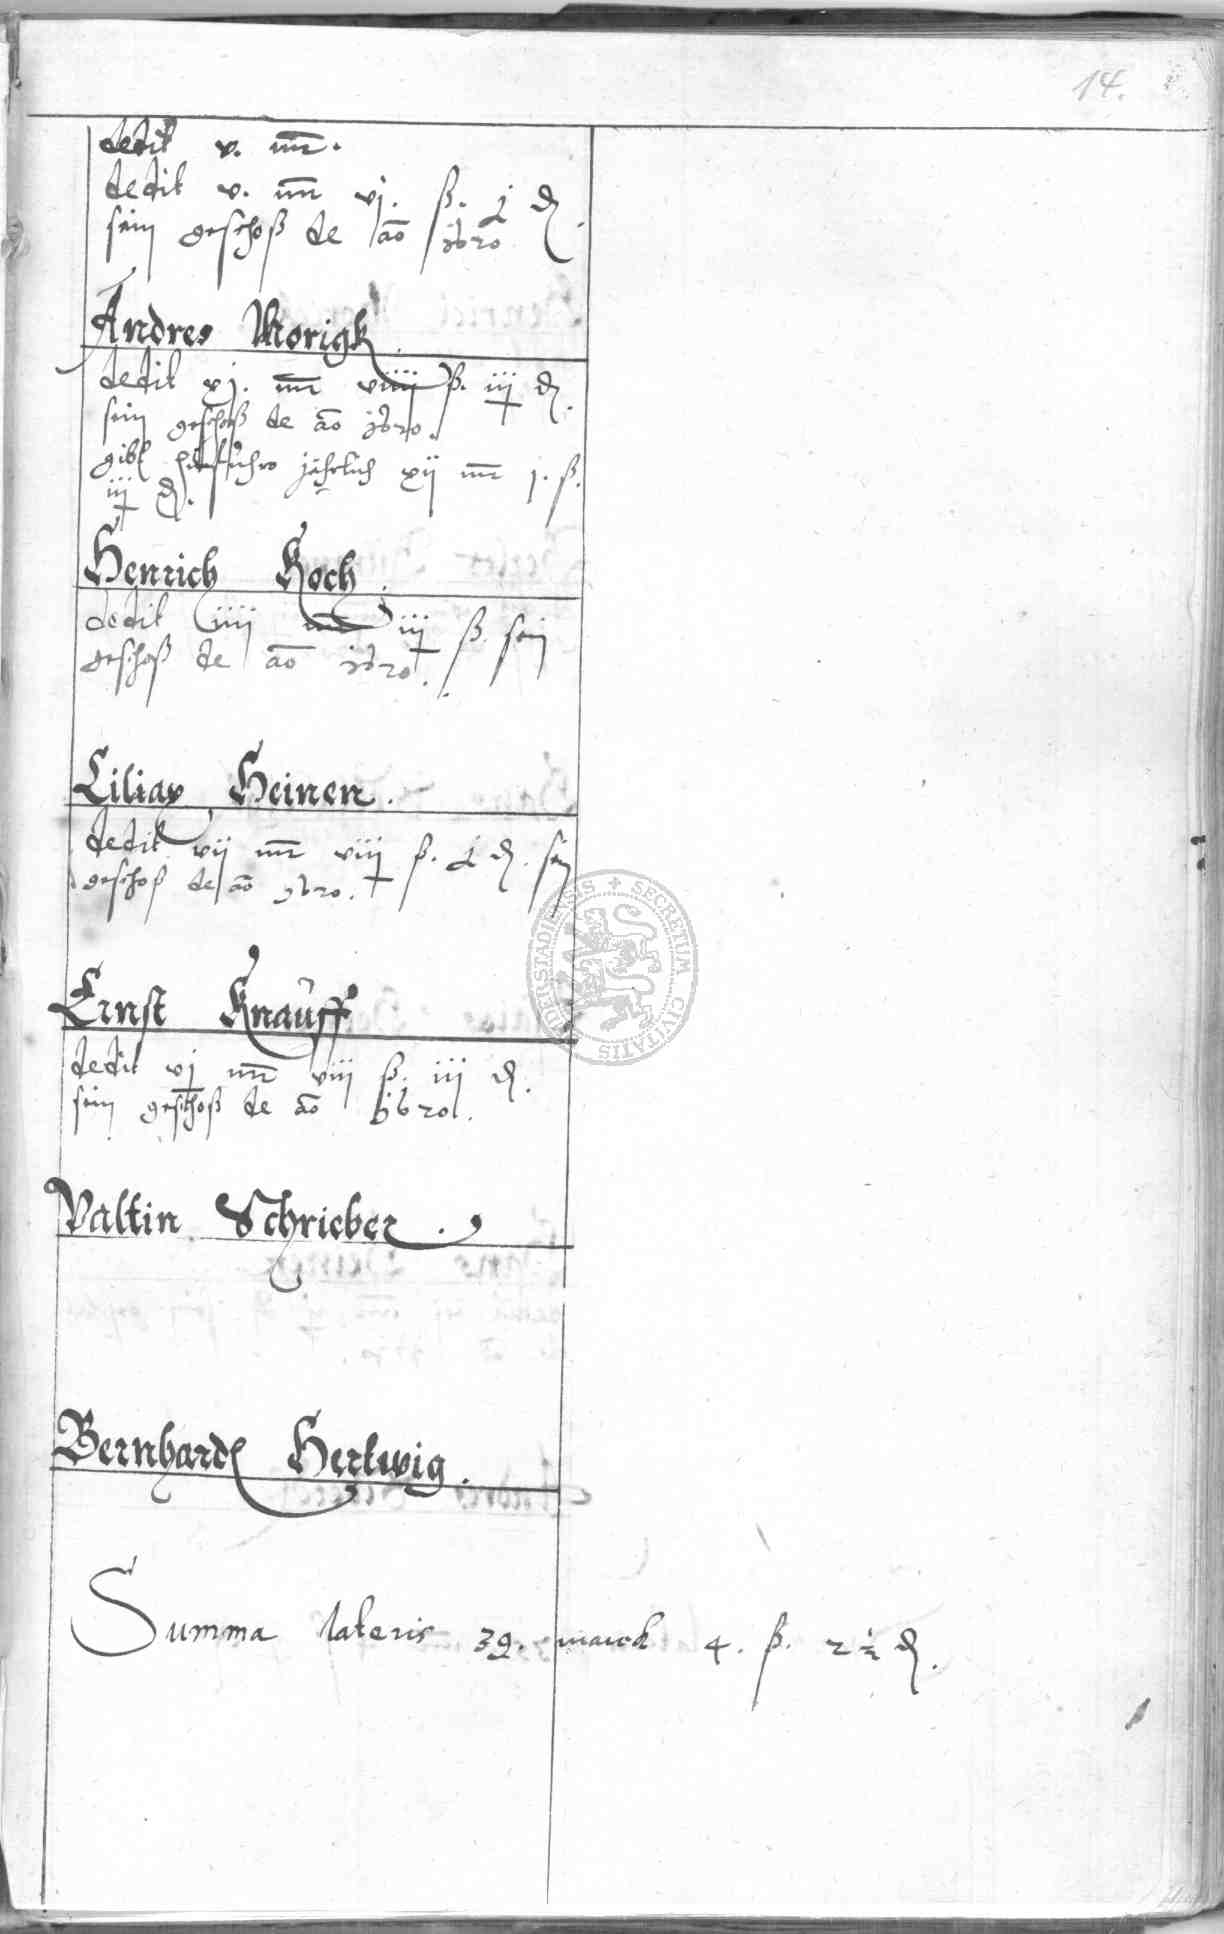 14.
dedit v. mr.
dedit v. mr vj. ß. j d.
sein geschoß de ao 1620
Andres Morigk
dedit xj. mr viiii ß. iij d.
sein geschoß de ao 1620.
gibt hinfuhro jährlich xij mr j. ß.
iij d.
Henrich Koch.
dedit iiii mr iij ß. sein
geschoß de ao 1620.
Ciliax Heinen.
dedit vij mr viij ß. j d. sein
geschoß de ao 1620.
Ernst Knauff
dedit vj mr viii ß. iij d.
sein geschoß de ao 1620.
Valtin Schrieber.
Bernhardt Hertwig.
Summa lateris 39. marck 4. ß. 2 1/2 d.
SECRETUM CIVITATIS DUDERSTADIENSIS